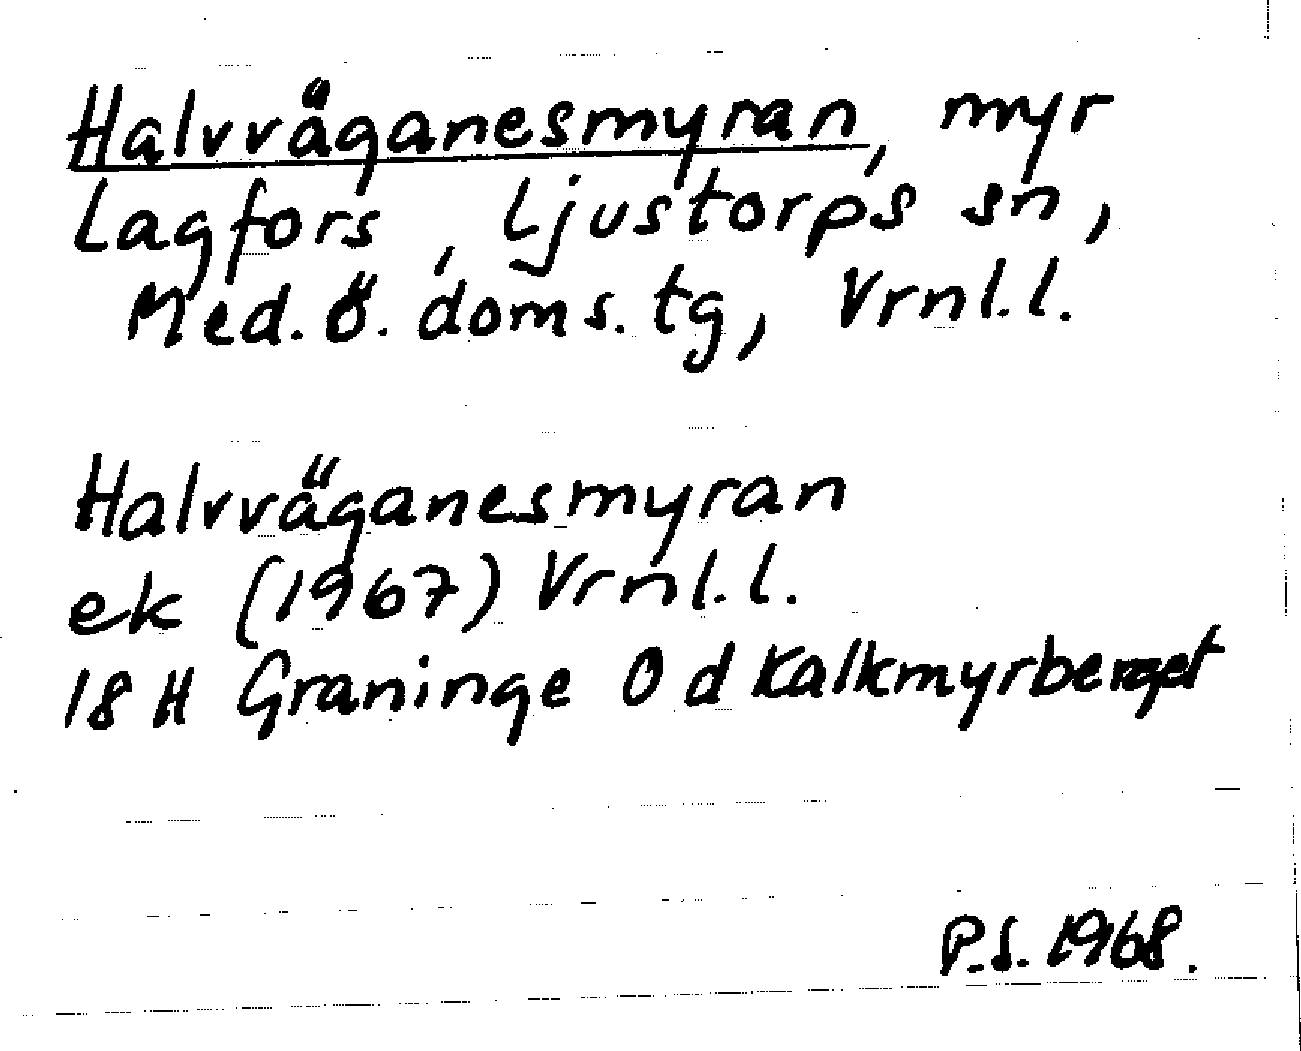 Halvväganesmyran, myr
Lagfors, Ljustorps sn,
Med. Ö. doms. tg, Vrnl.l.
Halvväganesmyran
ek (1967) Vrnl.l.
18 H Graninge O d Kalkmyrberget
P.S. 1968.